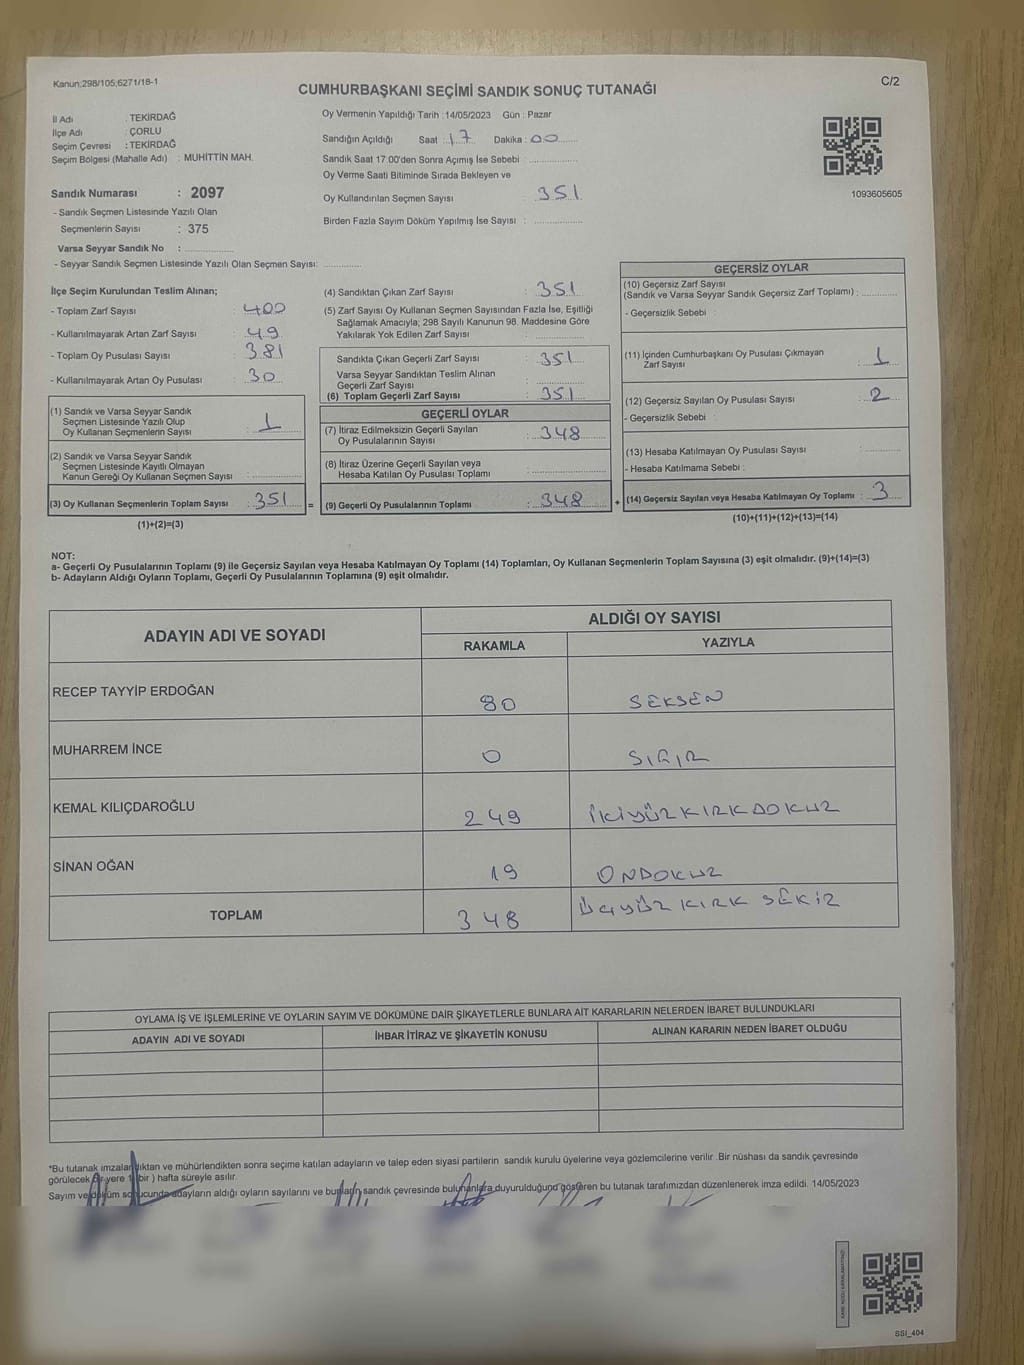 Kanun;298/105;6271/18-1
C/2
CUMHURBAŞKANI SEÇİMİ SANDIK SONUÇ TUTANAĞI
İl Adı : TEKİRDAĞ
İlçe Adı : ÇORLU
Seçim Çevresi : TEKİRDAĞ
Seçim Bölgesi (Mahalle Adı) : MUHİTTİN MAH.
Sandık Numarası : 2097
- Sandık Seçmen Listesinde Yazılı Olan
Seçmenlerin Sayısı : 375
Varsa Seyyar Sandık No :
- Seyyar Sandık Seçmen Listesinde Yazılı Olan Seçmen Sayısı:
Oy Vermenin Yapıldığı Tarih : 14/05/2023 Gün : Pazar
Sandığın Açıldığı Saat : 17 Dakika : 00
Sandık Saat 17:00'den Sonra Açımış İse Sebebi :
Oy Verme Saati Bitiminde Sırada Bekleyen ve
Oy Kullandırılan Seçmen Sayısı : 351
Birden Fazla Sayım Döküm Yapılmış İse Sayısı :
1093605605
İlçe Seçim Kurulundan Teslim Alınan;
- Toplam Zarf Sayısı : 400
- Kullanılmayarak Artan Zarf Sayısı : 49
- Toplam Oy Pusulası Sayısı : 381
- Kullanılmayarak Artan Oy Pusulası : 30
(1) Sandık ve Varsa Seyyar Sandık
Seçmen Listesinde Yazılı Olup
Oy Kullanan Seçmenlerin Sayısı : 1
(2) Sandık ve Varsa Seyyar Sandık
Seçmen Listesinde Kayıtlı Olmayan
Kanun Gereği Oy Kullanan Seçmen Sayısı :
(3) Oy Kullanan Seçmenlerin Toplam Sayısı : 351 =
(1)+(2)=(3)
(4) Sandıktan Çıkan Zarf Sayısı : 351
(5) Zarf Sayısı Oy Kullanan Seçmen Sayısından Fazla İse, Eşitliği
Sağlamak Amacıyla; 298 Sayılı Kanunun 98. Maddesine Göre
Yakılarak Yok Edilen Zarf Sayısı :
Sandıkta Çıkan Geçerli Zarf Sayısı : 351
Varsa Seyyar Sandıktan Teslim Alınan
Geçerli Zarf Sayısı :
(6) Toplam Geçerli Zarf Sayısı : 351
GEÇERLİ OYLAR
(7) İtiraz Edilmeksizin Geçerli Sayılan
Oy Pusulalarının Sayısı : 348
(8) İtiraz Üzerine Geçerli Sayılan veya
Hesaba Katılan Oy Pusulası Toplamı :
(9) Geçerli Oy Pusulalarının Toplamı : 348 +
GEÇERSİZ OYLAR
(10) Geçersiz Zarf Sayısı
(Sandık ve Varsa Seyyar Sandık Geçersiz Zarf Toplamı) :
- Geçersizlik Sebebi :
(11) İçinden Cumhurbaşkanı Oy Pusulası Çıkmayan
Zarf Sayısı : 1
(12) Geçersiz Sayılan Oy Pusulası Sayısı : 2
- Geçersizlik Sebebi :
(13) Hesaba Katılmayan Oy Pusulası Sayısı :
- Hesaba Katılmama Sebebi :
(14) Geçersiz Sayılan veya Hesaba Katılmayan Oy Toplamı : 3
(10)+(11)+(12)+(13)=(14)
NOT:
a- Geçerli Oy Pusulalarının Toplamı (9) ile Geçersiz Sayılan veya Hesaba Katılmayan Oy Toplamı (14) Toplamları, Oy Kullanan Seçmenlerin Toplam Sayısına (3) eşit olmalıdır. (9)+(14)=(3)
b- Adayların Aldığı Oyların Toplamı, Geçerli Oy Pusulalarının Toplamına (9) eşit olmalıdır.
ADAYIN ADI VE SOYADI
ALDIĞI OY SAYISI
RAKAMLA YAZIYLA
RECEP TAYYİP ERDOĞAN 80 SEKSEN
MUHARREM İNCE 0 SIFIR
KEMAL KILIÇDAROĞLU 249 İKİYÜZKIRKDOKUZ
SİNAN OĞAN 19 ONDOKUZ
TOPLAM 348 ÜÇYÜZ KIRK SEKİZ
OYLAMA İŞ VE İŞLEMLERİNE VE OYLARIN SAYIM VE DÖKÜMÜNE DAİR ŞİKAYETLERLE BUNLARA AİT KARARLARIN NELERDEN İBARET BULUNDUKLARI
ADAYIN ADI VE SOYADI İHBAR İTİRAZ VE ŞİKAYETİN KONUSU ALINAN KARARIN NEDEN İBARET OLDUĞU
*Bu tutanak imzalandıktan ve mühürlendikten sonra seçime katılan adayların ve talep eden siyasi partilerin sandık kurulu üyelerine veya gözlemcilerine verilir. Bir nüshası da sandık çevresinde
görülecek bir yere 1( bir ) hafta süreyle asılır.
Sayım ve döküm sonucunda adayların aldığı oyların sayılarını ve bunların sandık çevresinde bulunanlara duyurulduğunu gösteren bu tutanak tarafımızdan düzenlenerek imza edildi. 14/05/2023
SSI_404